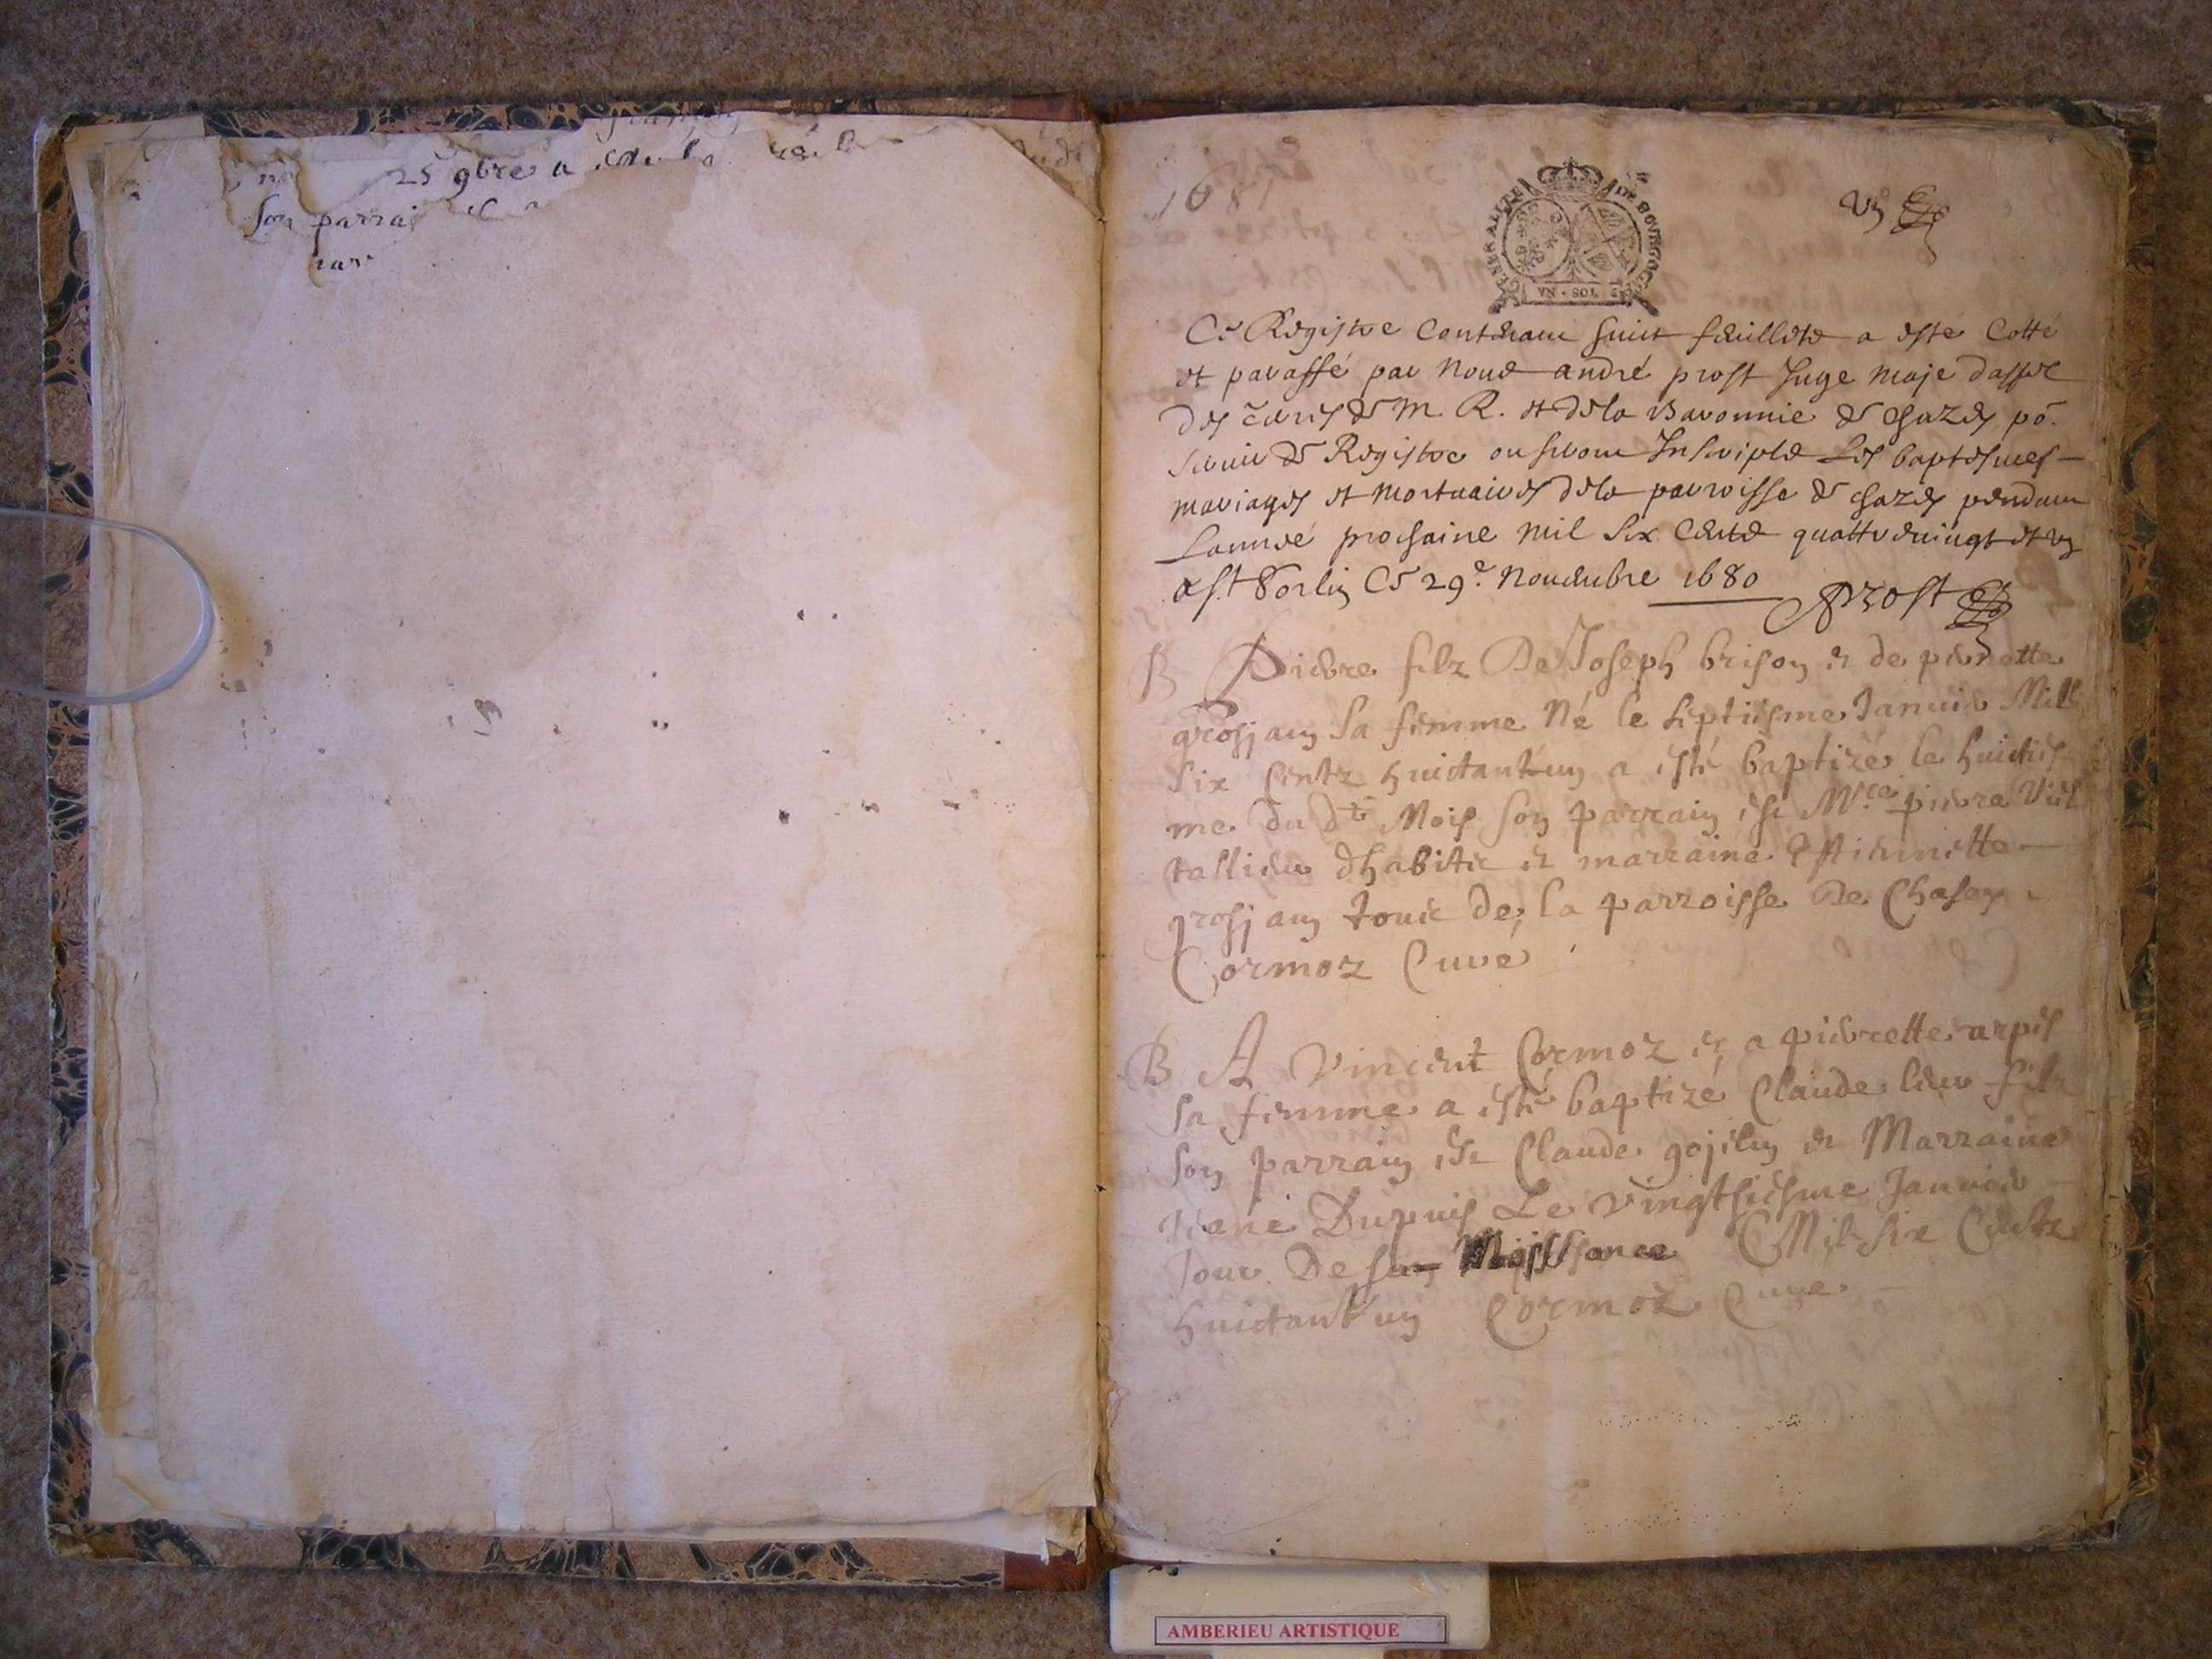 25 9bre a
son parrai
1681
GENERALITE DE BOURGOGNE
UN · SOL
Ce Registre Contenant huict feuillets a esté Cotté
et paraffé par Nous andré prost Juge Maje dappel
des terres de M. R. et dela Baronnie de Chazey po.
servir de Registre ou seront Inscripts Les baptesmes
mariages et Mortuaires dela parroisse de Chazey pendant
Lannée prochaine Mil six Cents quattrevingt et un
a St Sorlin Ce 29e. Novembre 1680 Prost
B Pierre filz De Joseph brison et de pernette
grosjean sa femme Né le septiesme Janvier Mill
six Centz huictant un a esté baptizé le huicties
me du dt Mois son parrain est Mre pierre
dhabite et marraine Estiennette
grosjean touts de la parroisse De Chasey
Cormoz Curé
B A Vincent Cormoz et a pierrette arpis
sa femme a esté baptizé Claude leur filz
son parrain est Claude gojelin et Marraine
Jeane Dupuis Le vingtsiesme Janvier
Jour De sa Naissance Mil six Centz
huictant un Cormoz Curé
AMBERIEU ARTISTIQUE